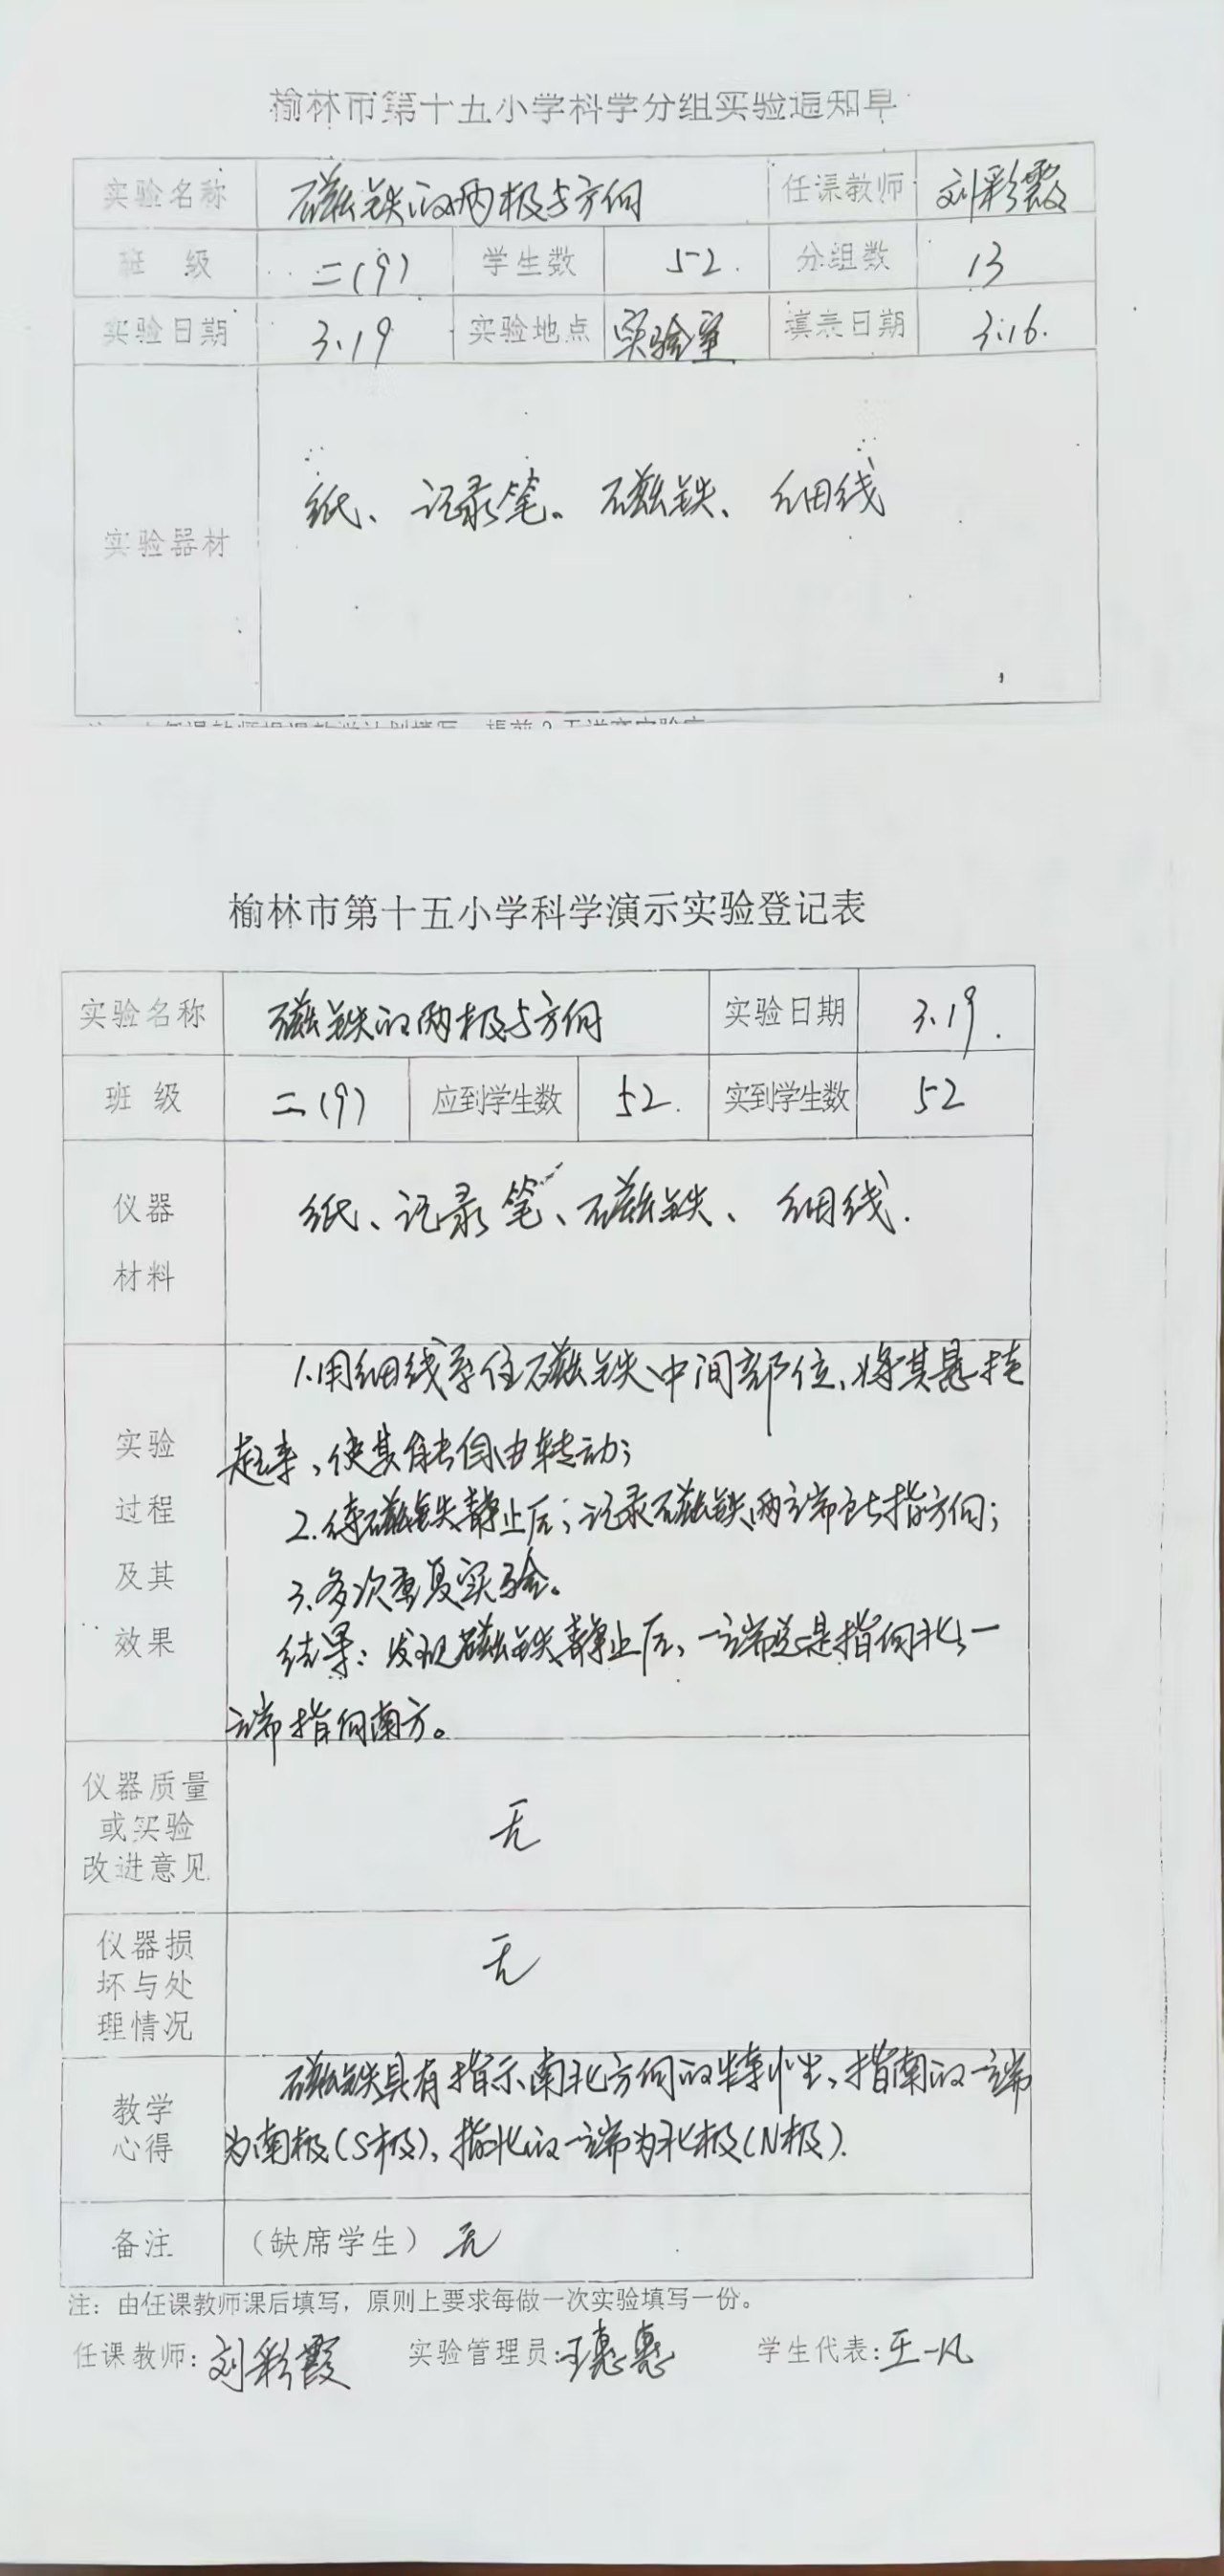 榆林市第十五小学科学分组实验通知单
实验名称 磁铁的两极与方向 任课教师 刘彩霞
班 级 二(9) 学生数 52. 分组数 13
实验日期 3.19 实验地点 实验室 填表日期 3.16.
实验器材 纸、记录笔、磁铁、细线
榆林市第十五小学科学演示实验登记表
实验名称 磁铁的两极与方向 实验日期 3.19.
班 级 二(9) 应到学生数 52. 实到学生数 52
仪器
材料
纸、记录笔、磁铁、细线.
实验
过程
及其
效果
1.用细线系住磁铁中间部位、将其悬挂
起来,使其能自由转动;
2.待磁铁静止后;记录磁铁两端所指方向;
3.多次重复实验。
结果:发现磁铁静止后,一端总是指向北、一
端指向南方。
仪器质量
或实验
改进意见
无
仪器损
坏与处
理情况
无
教学
心得
磁铁具有指示南北方向的特性,指南的一端
为南极(S极),指北的一端为北极(N极).
备注 (缺席学生) 无
注:由任课教师课后填写,原则上要求每做一次实验填写一份。
任课教师:刘彩霞 实验管理员:王惠惠 学生代表:王一凡